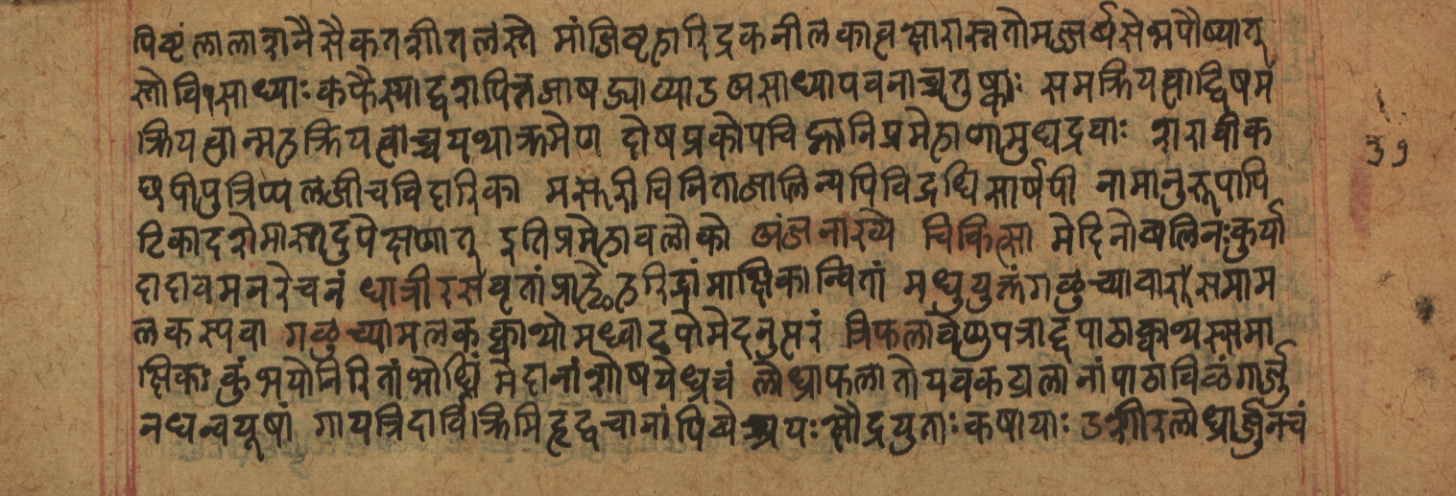 पिष्टं लाला शनै सैकत शीत लस्ते मांजिष्टहारिद्रकनीलकाह्व क्षारास्त्रतोमज्जर्वसेभ्मपौष्यात्
स्तो वि१साध्याः कफैस्याद्दशपित्तजाषड्याप्याऽ असाध्यापवनाच्चतुष्काः समक्रियत्वाद्विषम
क्रियत्वान्महक्रियत्वाच्चयथाक्रमेण दोषप्रकोपचिह्नानिप्रमेहाणामुपद्रवाः शरावीक
छपीपुत्रिण्यलजीचविदारिका मसूरीविनिताजालिन्यपिविद्रधिसार्षपी नामानुरूपापि
टिकादशेमास्तदुपेक्षणात् इतिप्रमेहावलोको अंजनाख्ये चिकित्सा मेदिनोबलिनःकुर्या
दादावमनरेचनं धात्रीरसेवृतांप्राह्णेहरिद्रांमाक्षिकान्वितां मधुयुक्तंगळुच्यावारसमाम
लकस्यवा गळुच्यामलकक्वाथोमध्वाढ्योमेदनुत्परं त्रिफलावेणुपत्राब्दपाठाक्वाथस्समा
क्षिकः कुंभयोनिरितांभोधिं मेहानांशोषयेध्रुचं लोध्राफलातोयवकट्फलानांपाठाविळंगार्जु
नधन्वयूषां गायत्रिदार्विक्रिमिहृद्वचानां पिबेत्त्रयःक्षौद्रयुताःकषायाः उशीरलोध्रार्जुनचं
३९